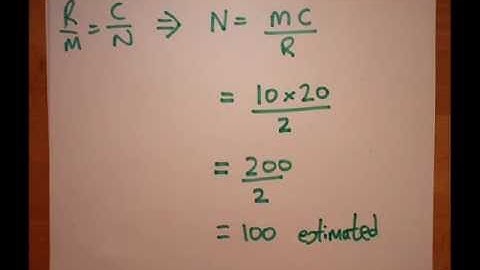 R/M = C/N ⇒ N = MC/R
= 10 × 20/2
= 200/2
= 100 estimated